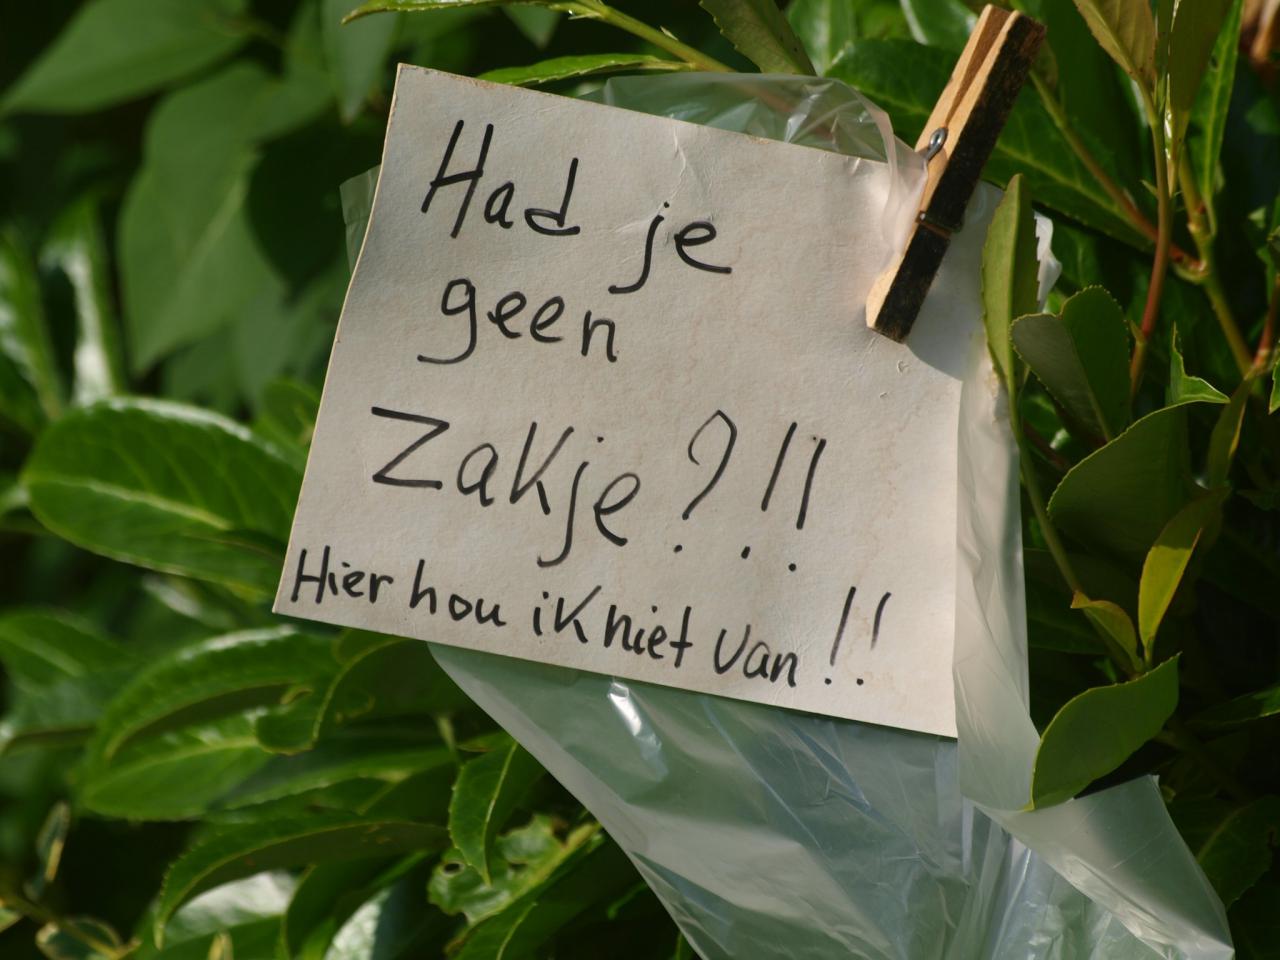 Had je
geen
Zakje?!!
Hier hou ik niet van!!